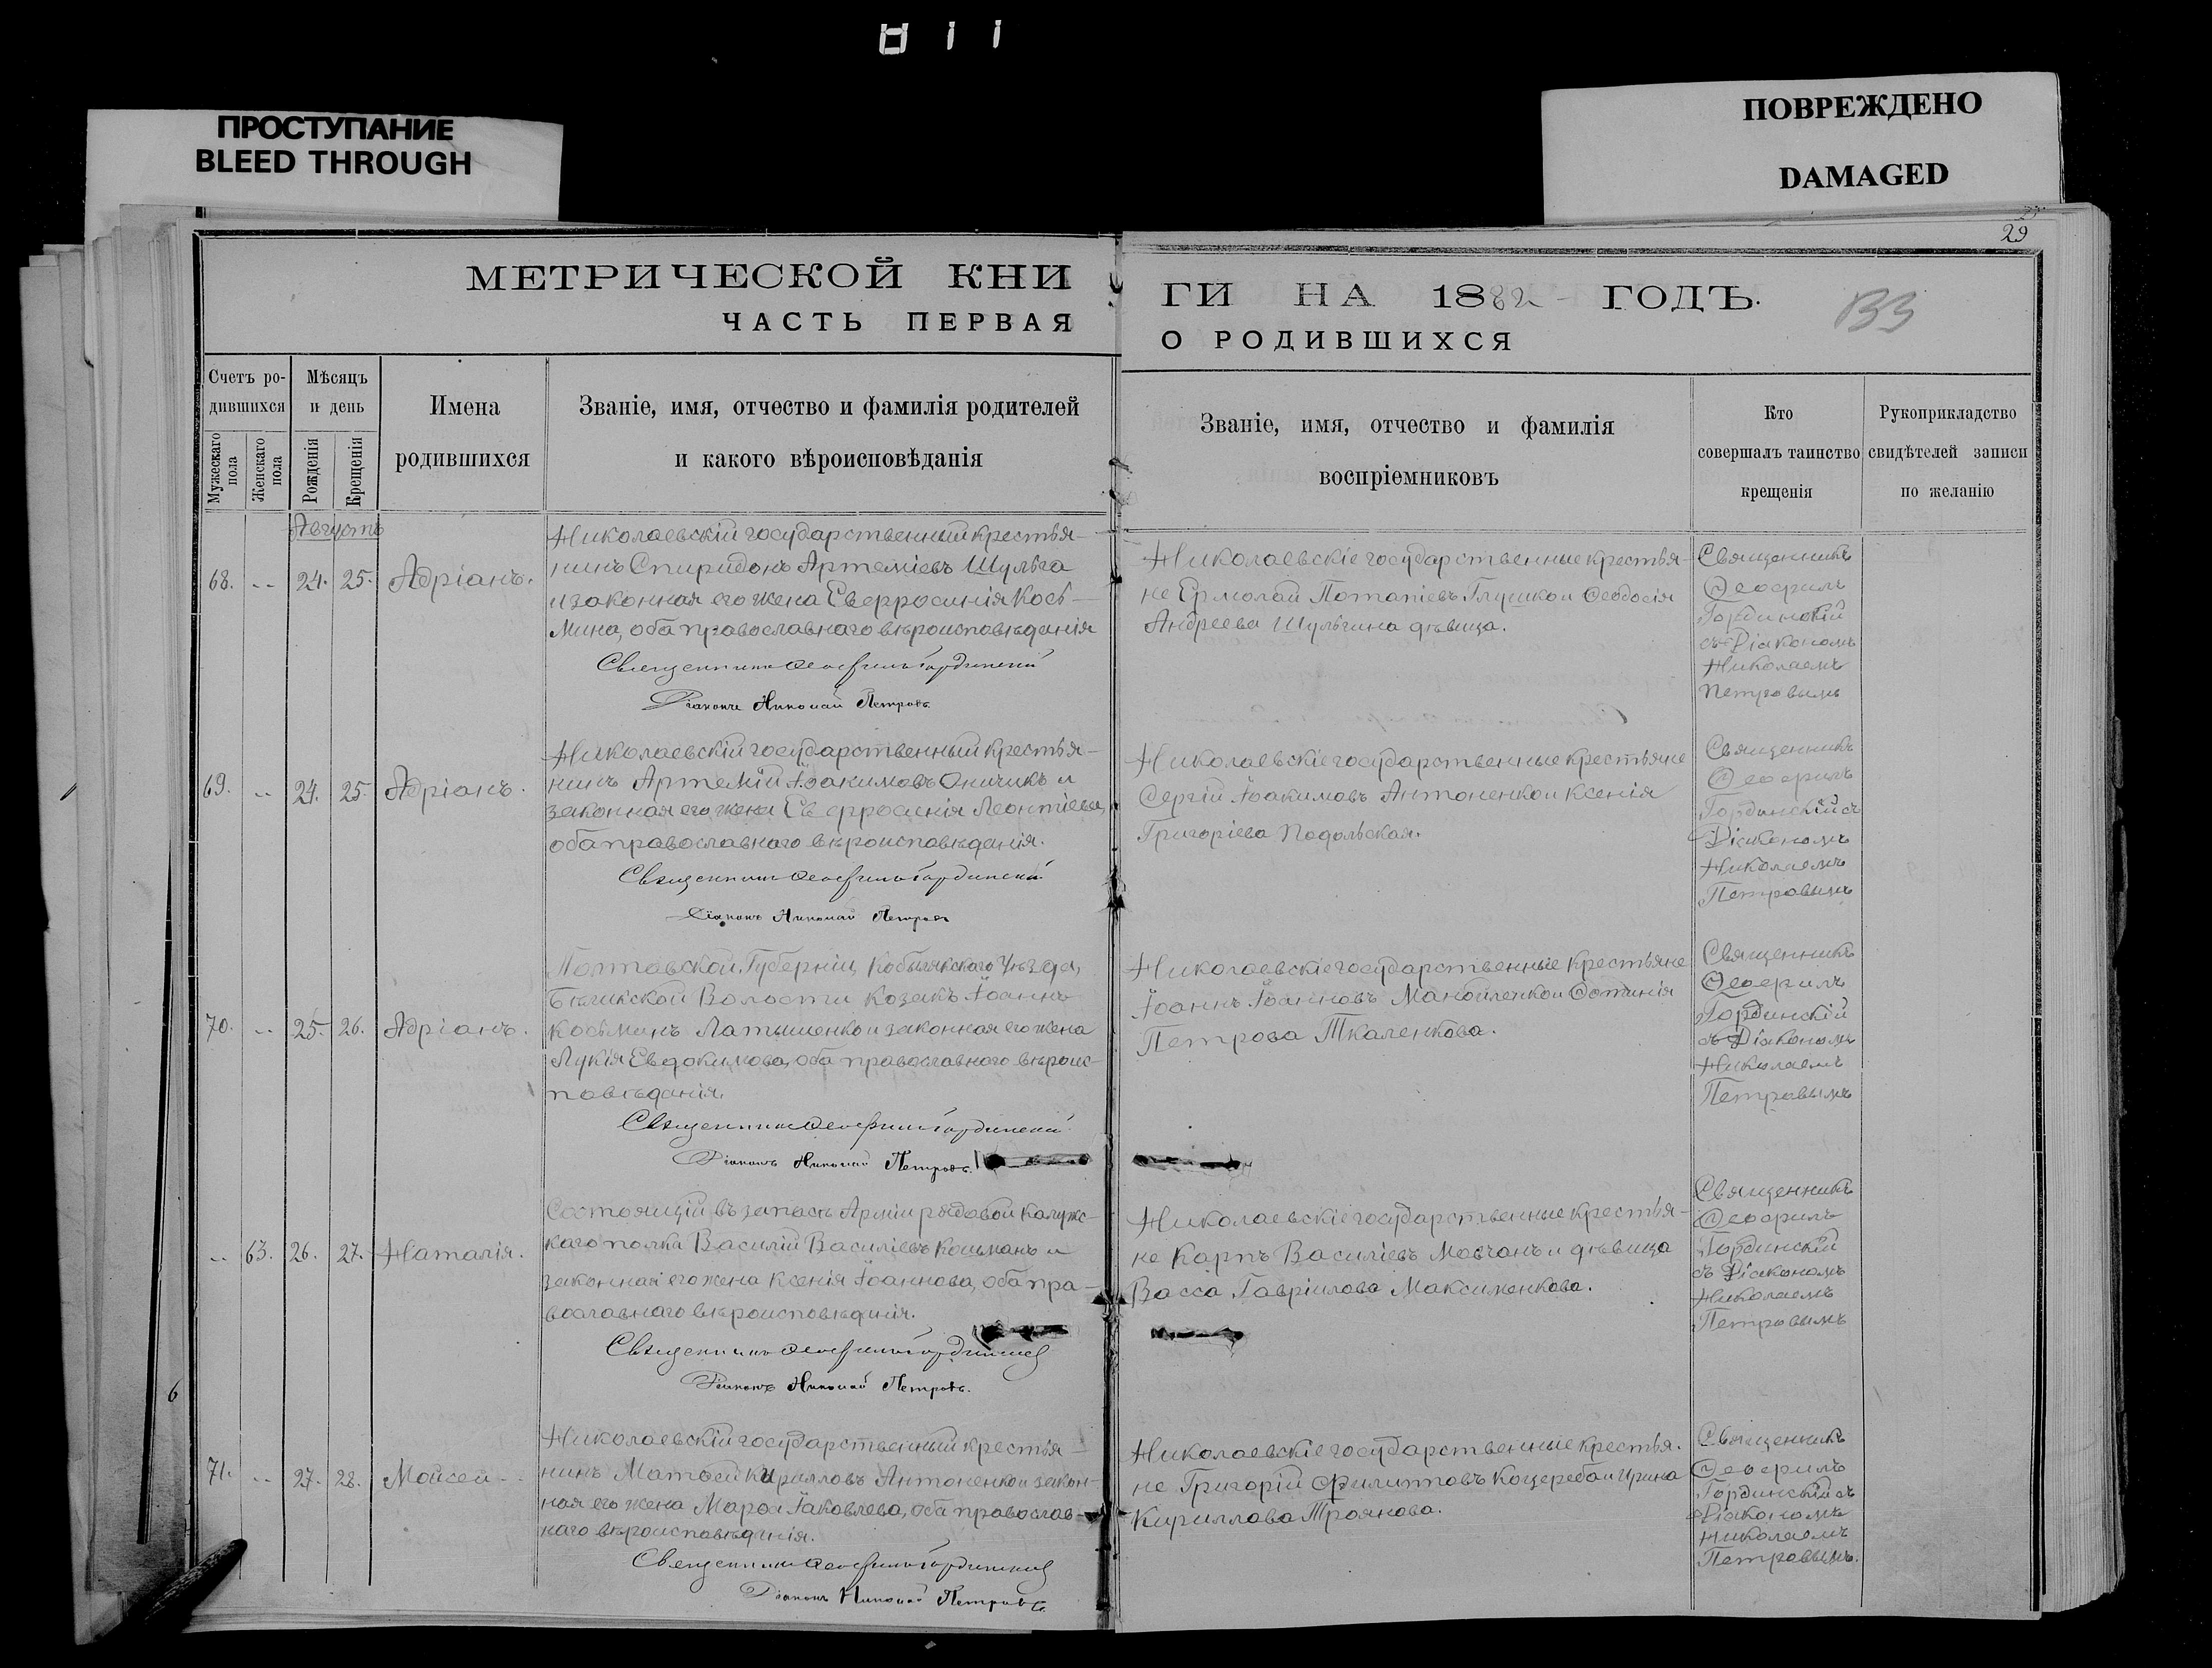 ПРОСТУПАНИЕ
BLEED THROUGH
ПОВРЕЖДЕНО
DAMAGED
29
МЕТРИЧЕСКОЙ КНИ
ГИ НА 1882 ГОДЪ.
ЧАСТЬ ПЕРВАЯ
О РОДИВШИХСЯ
Счетъ ро-
дившихся
Мужескаго пола
Женскаго пола
Мѣсяцъ
и день
Рожденія
Крещенія
Имена
родившихся
Званіе, имя, отчество и фамилія родителей
и какого вѣроисповѣданія
Званіе, имя, отчество и фамилія
воспріемниковъ
Кто
совершалъ таинство
крещенія
Рукоприкладство
свидѣтелей записи
по желанію
Августъ
68. -- 24. 25. Адріанъ.
Николаевскій государственный крестья-
нинъ Спиридонъ Артеміевъ Шульга
и законная его жена Евфросинія Косьмина,
оба православнаго вѣроисповѣданія
Священникъ Ѳеофилъ Гординскій
Діаконъ Николай Петровъ
Николаевскіе государственные крестья-
не Ермолай Потапіевъ Глушко и Ѳеодосія
Андреева Шульгина дѣвица.
Священникъ
Ѳеофилъ
Гординскій
съ Діакономъ
Николаемъ
Петровымъ
69. -- 24. 25. Адріанъ.
Николаевскій государственный крестья-
нинъ Артемій Іоакимовъ Оничикъ и
законная его жена Евфросинія Леонтіева,
оба православнаго вѣроисповѣданія.
Священникъ Ѳеофилъ Гординскій
Діаконъ Николай Петровъ
Николаевскіе государственные крестьяне
Сергій Іоакимовъ Антоненко и Ксенія
Григоріева Подольская.
Священникъ
Ѳеофилъ
Гординскій съ
Діакономъ
Николаемъ
Петровымъ
70. -- 25. 26. Адріанъ.
Полтавской Губерніи, Кобылякскаго Уѣзда,
Бѣликской Волости Козакъ Іоаннъ
Косьминъ Латышенко и законная его жена
Лукія Евдокимова, оба православнаго вѣроис-
повѣданія.
Священникъ Ѳеофилъ Гординскій
Діаконъ Николай Петровъ.
Николаевскіе государственные крестьяне
Іоаннъ Іоанновъ Манойленко и Фотинія
Петрова Ткаленкова.
Священникъ
Ѳеофилъ
Гординскій
съ Діакономъ
Николаемъ
Петровымъ
-- 63. 26. 27. Наталія.
Состоящій въ запасѣ Арміи рядовой Калужс-
каго полка Василій Василіевъ Кошманъ и
законная его жена Ксенія Іоаннова, оба пра-
вославнаго вѣроисповѣданія.
Священникъ Ѳеофилъ Гординскій
Діаконъ Николай Петровъ.
Николаевскіе государственные крестья-
не Карпъ Василіевъ Мовчанъ и дѣвица
Васса Гавріилова Максименкова.
Священникъ
Ѳеофилъ
Гординскій
съ Діакономъ
Николаемъ
Петровымъ
71. -- 27. 28. Мойсей --
Николаевскій государственный крестья-
нинъ Матѳей Кирилловъ Антоненко и закон-
ная его жена Марѳа Іаковлева, оба православ-
наго вѣроисповѣданія.
Священникъ Ѳеофилъ Гординскій
Діаконъ Николай Петровъ
Николаевскіе государственные крестья-
не Григорій Филипповъ Коцереба и Ирина
Кириллова Троянова.
Священникъ
Ѳеофилъ
Гординскій съ
Діакономъ
Николаемъ
Петровымъ.
6